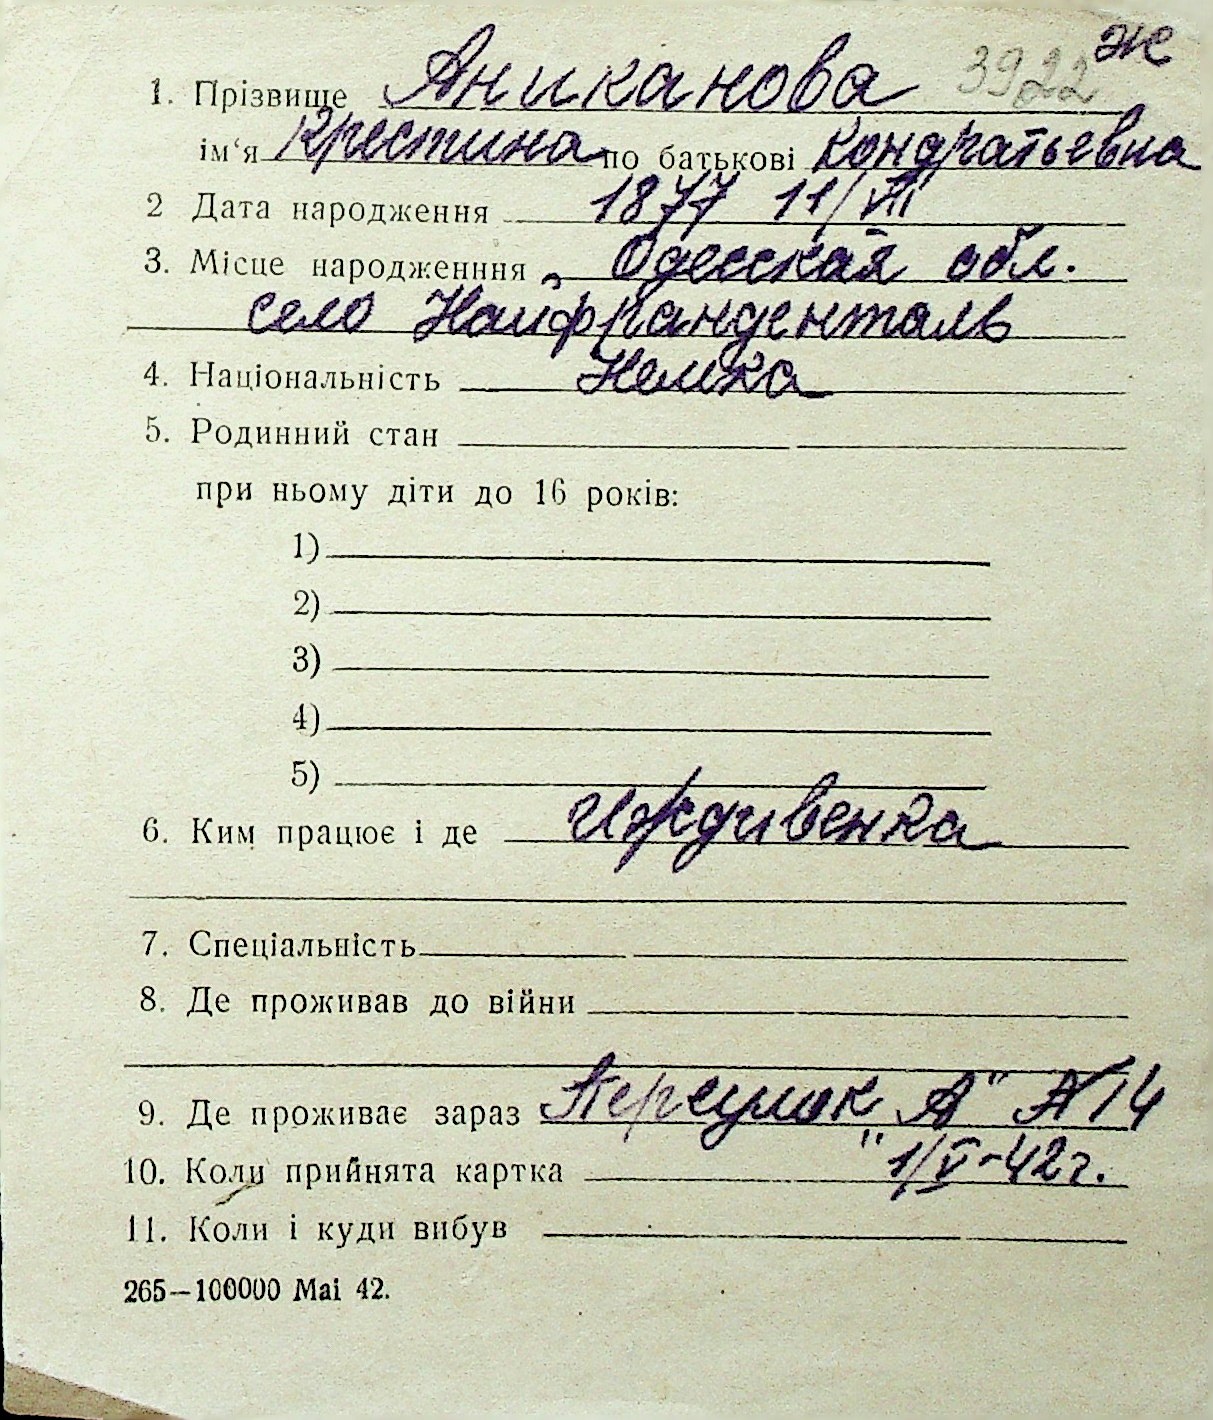 ж
3922
1. Прізвище Аниканова
ім‘я Крестина по батькові Кондратьевна
2 Дата народження 1877 11/VII
3. Місце народженння Одесская обл.
село Найфранденталь
4. Національність Немка
5. Родинний стан
при ньому діти до 16 років:
1)
2)
3)
4)
5)
6. Ким працює і де Иждивенка
7. Спеціальність
8. Де проживав до війни
9. Де проживає зараз Переулок „А" №14
10. Коли прийнята картка 1/V-42г.
11. Коли і куди вибув
265—100000 Mai 42.